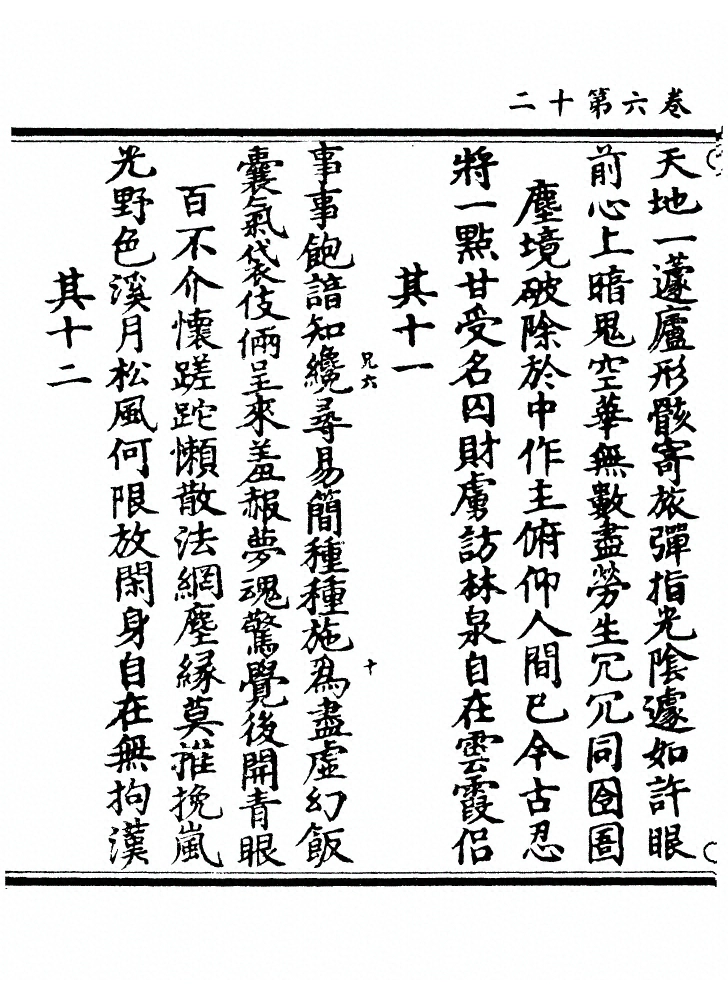 卷六第十二
天地一蘧廬形骸寄旅彈指光陰遽如許眼
前心上暗鬼空華無數盡勞生冗冗同囹圄
塵境破除於中作主俯仰人間已今古忍
將一點甘受名囚財虜訪林泉自在雲霞侶
其十一
兄六
十
事事飽諳知纔尋易簡種種施為盡虛幻飯
囊氣袋伎倆呈來羞赧夢魂驚覺後開青眼
百不介懷蹉跎懶散法網塵緣莫推挽嵐
光野色溪月松風何限放閑身自在無拘漢
其十二